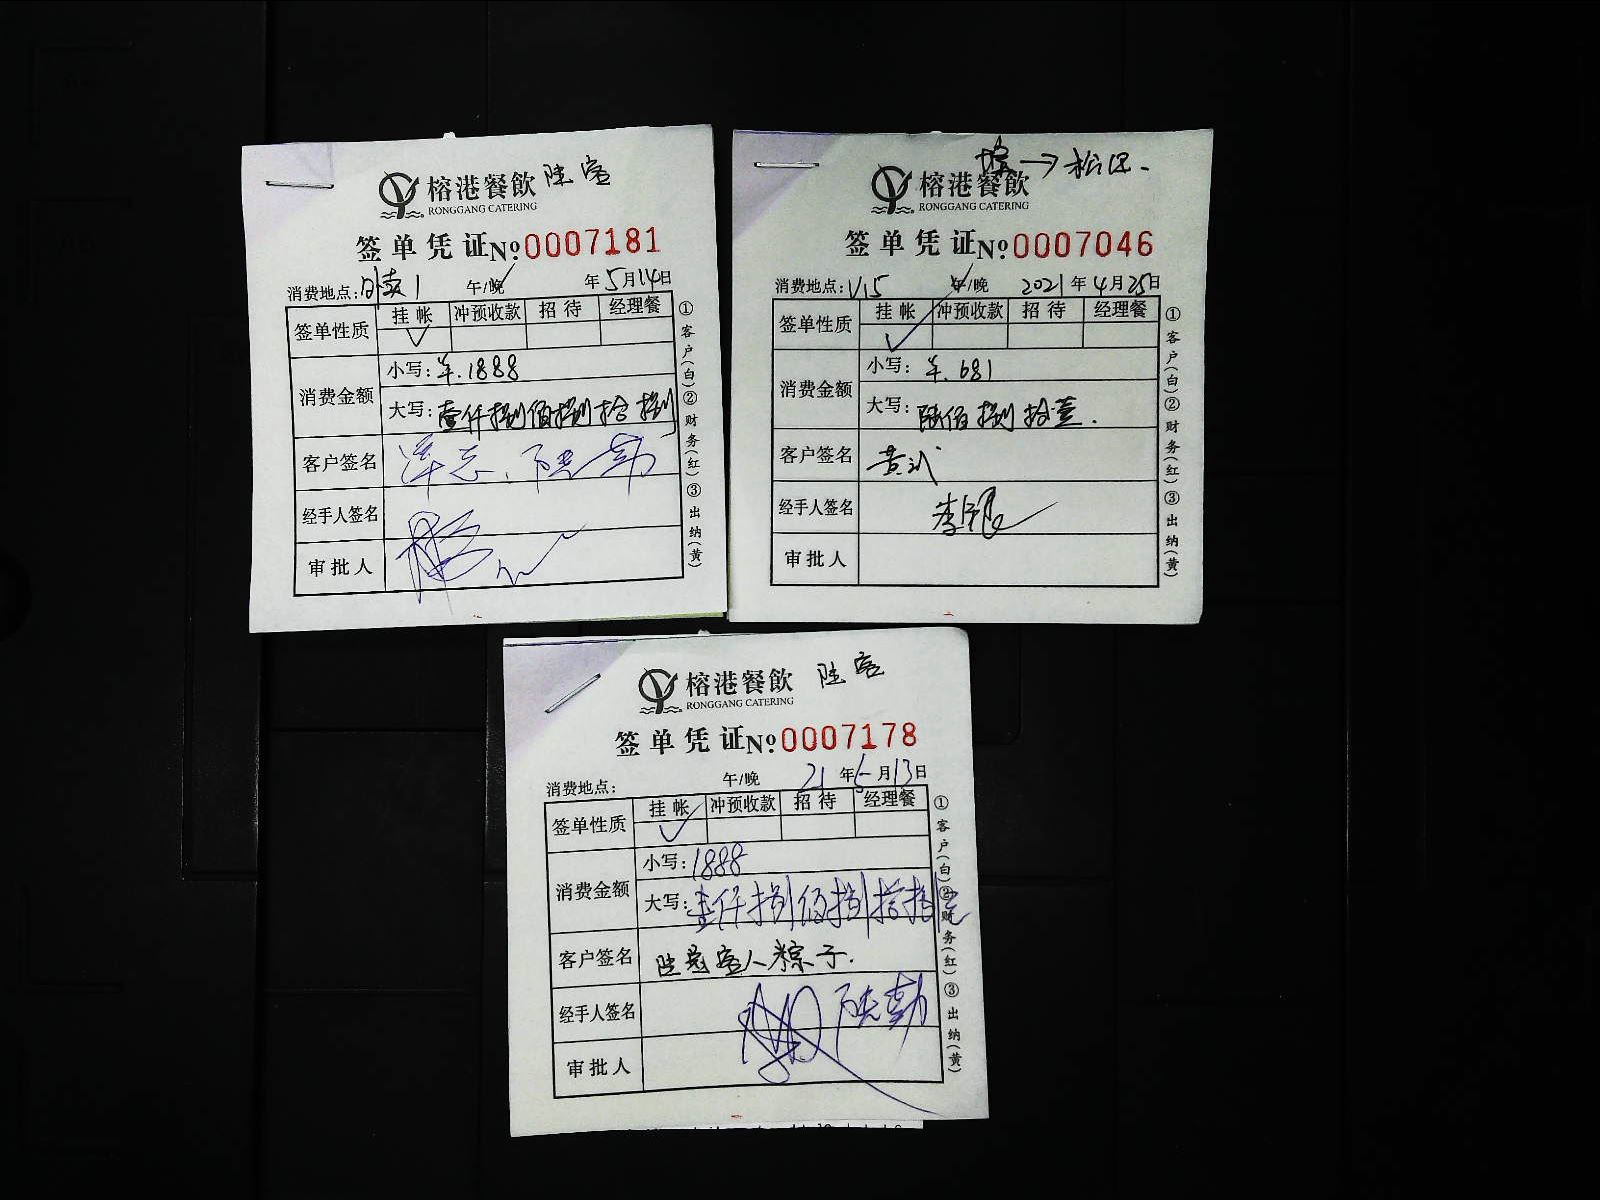 榕港餐飲 陆客
RONGGANG CATERING
签单凭证 №0007181
消费地点：外卖1 午/晚 年5月14日
签单性质 挂帐 冲预收款 招待 经理餐
✓
消费金额
小写：¥.1888
大写：壹仟捌佰捌拾捌
客户签名
经手人签名
审批人
①客户(白)②财务(红)③出纳(黄)
榕港餐飲
RONGGANG CATERING
签单凭证 №0007046
消费地点：V15 午/晚 2021年4月25日
签单性质 挂帐 冲预收款 招待 经理餐
✓
消费金额
小写：¥.681
大写：陆佰捌拾壹.
客户签名
经手人签名
审批人
①客户(白)②财务(红)③出纳(黄)
榕港餐飲 陆客
RONGGANG CATERING
签单凭证 №0007178
消费地点： 午/晚 21年5月13日
签单性质 挂帐 冲预收款 招待 经理餐
✓
消费金额
小写：1888
大写：壹仟捌佰捌拾捌元
客户签名 客人粽子.
经手人签名
审批人
①客户(白)②财务(红)③出纳(黄)